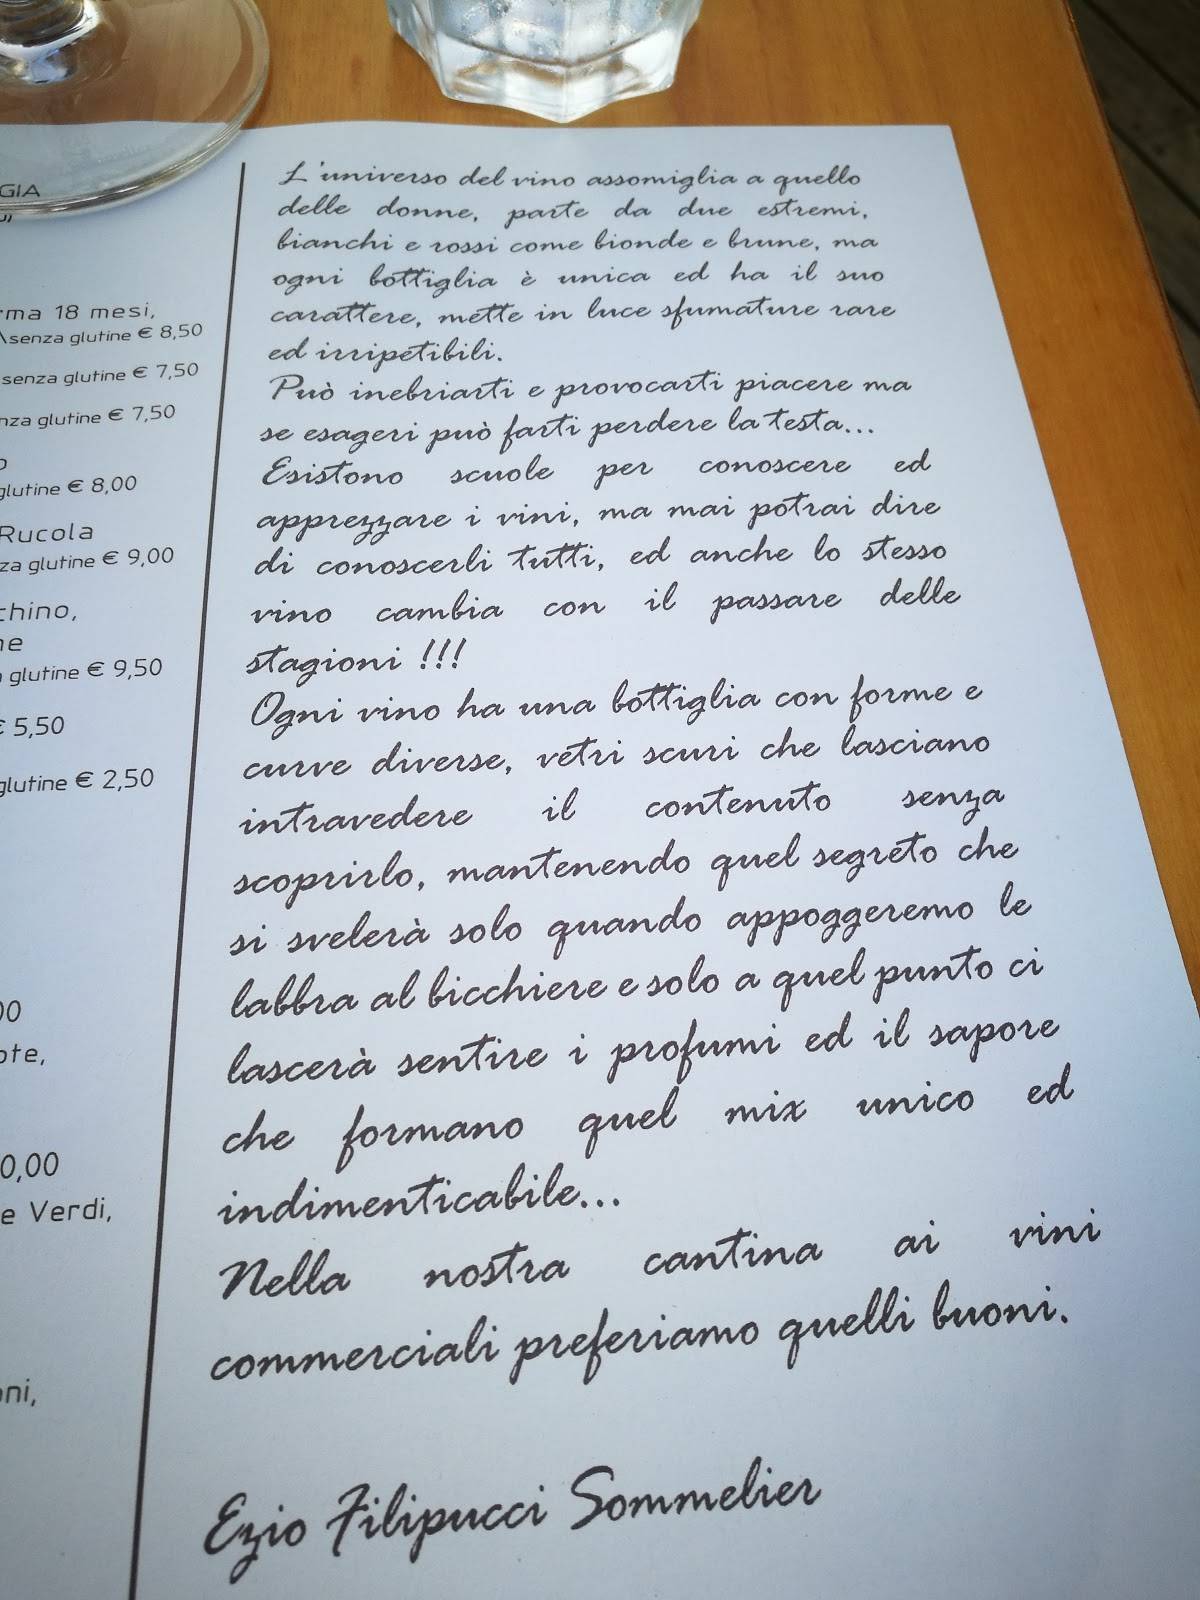 GIA
rma 18 mesi,
senza glutine € 8,50
senza glutine € 7,50
nza glutine € 7,50
glutine € 8,00
Rucola
za glutine € 9,00
chino,
ne
glutine € 9,50
€ 5,50
glutine € 2,50
00
ote,
0,00
e Verdi,
oni,
L'universo del vino assomiglia a quello
delle donne, parte da due estremi,
bianchi e rossi come bionde e brune, ma
ogni bottiglia è unica ed ha il suo
carattere, mette in luce sfumature rare
ed irripetibili.
Può inebriarti e provocarti piacere ma
se esageri può farti perdere la testa...
Esistono scuole per conoscere ed
apprezzare i vini, ma mai potrai dire
di conoscerli tutti, ed anche lo stesso
vino cambia con il passare delle
stagioni !!!
Ogni vino ha una bottiglia con forme e
curve diverse, vetri scuri che lasciano
intravedere il contenuto senza
scoprirlo, mantenendo quel segreto che
si svelerà solo quando appoggeremo le
labbra al bicchiere e solo a quel punto ci
lascerà sentire i profumi ed il sapore
che formano quel mix unico ed
indimenticabile...
Nella nostra cantina ai vini
commerciali preferiamo quelli buoni.
Ezio Filipucci Sommelier